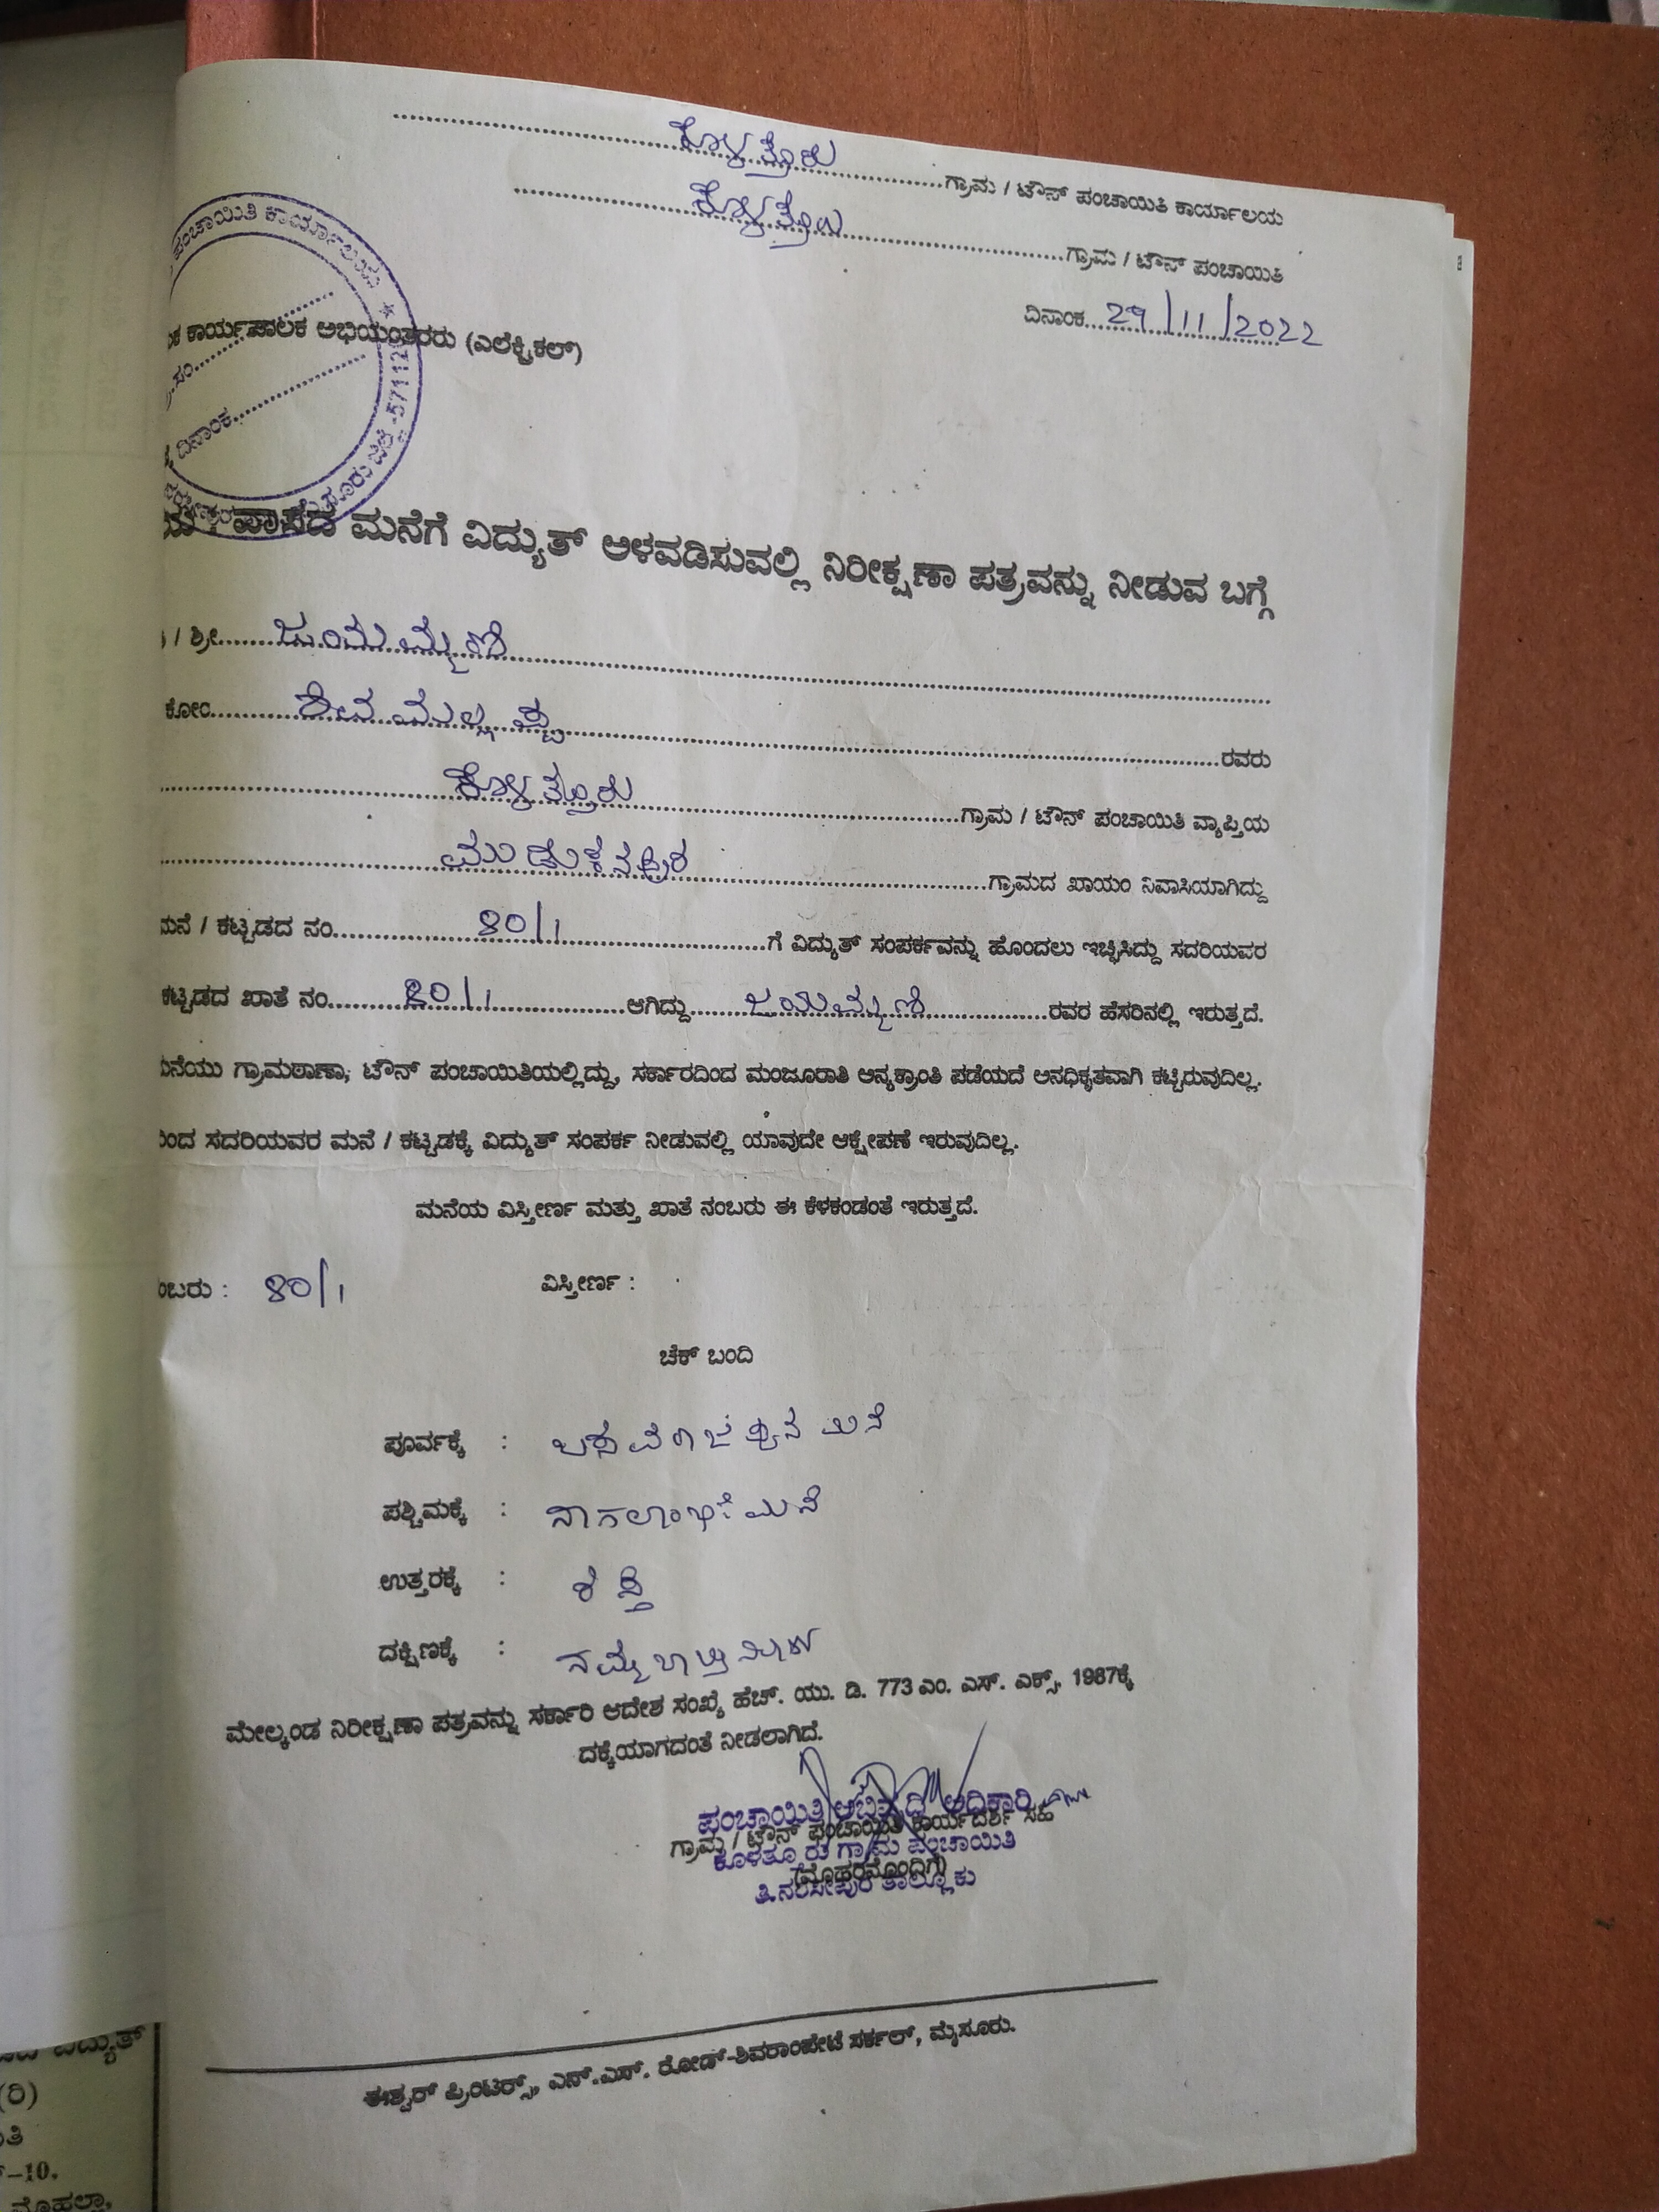 ಕೊಳತ್ತೂರು ಗ್ರಾಮ / ಟೌನ್ ಪಂಚಾಯಿತಿ ಕಾರ್ಯಾಲಯ
ಕೊಳತ್ತೂರು ಗ್ರಾಮ / ಟೌನ್ ಪಂಚಾಯಿತಿ
ದಿನಾಂಕ 29/11/2022
ಪಂಚಾಯಿತಿ ಕಾರ್ಯಾಲಯ
ಕಾರ್ಯಪಾಲಕ ಅಭಿಯಂತರರು (ಎಲೆಕ್ಟ್ರಿಕಲ್)
ಸಂ
ದಿನಾಂಕ
ಮೈಸೂರು ಜಿಲ್ಲೆ -571120
ವಾಸದ ಮನೆಗೆ ವಿದ್ಯುತ್ ಅಳವಡಿಸುವಲ್ಲಿ ನಿರೀಕ್ಷಣಾ ಪತ್ರವನ್ನು ನೀಡುವ ಬಗ್ಗೆ
/ ಶ್ರೀ ಜಯಮ್ಮಣಿ
ಕೋಂ ಶಿವಮಲ್ಲಪ್ಪ ರವರು
ಕೊಳತ್ತೂರು ಗ್ರಾಮ / ಟೌನ್ ಪಂಚಾಯಿತಿ ವ್ಯಾಪ್ತಿಯ
ಮುಡುಕನಪುರ ಗ್ರಾಮದ ಖಾಯಂ ನಿವಾಸಿಯಾಗಿದ್ದು
ಮನೆ / ಕಟ್ಟಡದ ನಂ. 80/1 ಗೆ ವಿದ್ಯುತ್ ಸಂಪರ್ಕವನ್ನು ಹೊಂದಲು ಇಚ್ಛಿಸಿದ್ದು ಸದರಿಯವರ
ಕಟ್ಟಡದ ಖಾತೆ ನಂ. 80/1 ಆಗಿದ್ದು ಜಯಮ್ಮಣಿ ರವರ ಹೆಸರಿನಲ್ಲಿ ಇರುತ್ತದೆ.
ಗ್ರಾಮಠಾಣಾ, ಟೌನ್ ಪಂಚಾಯಿತಿಯಲ್ಲಿದ್ದು, ಸರ್ಕಾರದಿಂದ ಮಂಜೂರಾತಿ ಅನ್ಯಕ್ರಾಂತಿ ಪಡೆಯದೆ ಅನಧಿಕೃತವಾಗಿ ಕಟ್ಟಿರುವುದಿಲ್ಲ.
ಸದರಿಯವರ ಮನೆ / ಕಟ್ಟಡಕ್ಕೆ ವಿದ್ಯುತ್ ಸಂಪರ್ಕ ನೀಡುವಲ್ಲಿ ಯಾವುದೇ ಆಕ್ಷೇಪಣೆ ಇರುವುದಿಲ್ಲ.
ಮನೆಯ ವಿಸ್ತೀರ್ಣ ಮತ್ತು ಖಾತೆ ನಂಬರು ಈ ಕೆಳಕಂಡಂತೆ ಇರುತ್ತದೆ.
ಂಬರು : 80/1 ವಿಸ್ತೀರ್ಣ :
ಚೆಕ್ ಬಂದಿ
ಪೂರ್ವಕ್ಕೆ : ಮನೆ
ಪಶ್ಚಿಮಕ್ಕೆ : ಮನೆ
ಉತ್ತರಕ್ಕೆ : ರಸ್ತೆ
ದಕ್ಷಿಣಕ್ಕೆ :
ಮೇಲ್ಕಂಡ ನಿರೀಕ್ಷಣಾ ಪತ್ರವನ್ನು ಸರ್ಕಾರಿ ಆದೇಶ ಸಂಖ್ಯೆ ಹೆಚ್. ಯು. ಡಿ. 773 ಎಂ. ಎಸ್. ಎಕ್ಸ್, 1987ಕ್ಕೆ
ದಕ್ಕೆಯಾಗದಂತೆ ನೀಡಲಾಗಿದೆ.
ಪಂಚಾಯಿತಿ ಅಭಿವೃದ್ಧಿ ಅಧಿಕಾರಿ
ಗ್ರಾಮ / ಟೌನ್ ಪಂಚಾಯಿತಿ ಕಾರ್ಯದರ್ಶಿ ಸಹಿ
ಕೊಳತೂರು ಗ್ರಾಮ ಪಂಚಾಯಿತಿ
(ಮೊಹರಿನೊಂದಿಗೆ)
ತಿ.ನರಸೀಪುರ ತಾಲ್ಲೂಕು
ಈಶ್ವರ್ ಪ್ರಿಂಟರ್ಸ್, ಎನ್.ಎಸ್. ರೋಡ್-ಶಿವರಾಂಪೇಟೆ ಸರ್ಕಲ್, ಮೈಸೂರು.
ವಿದ್ಯುತ್
(ರಿ)
-10.
ಮೊಹಲ್ಲಾ,